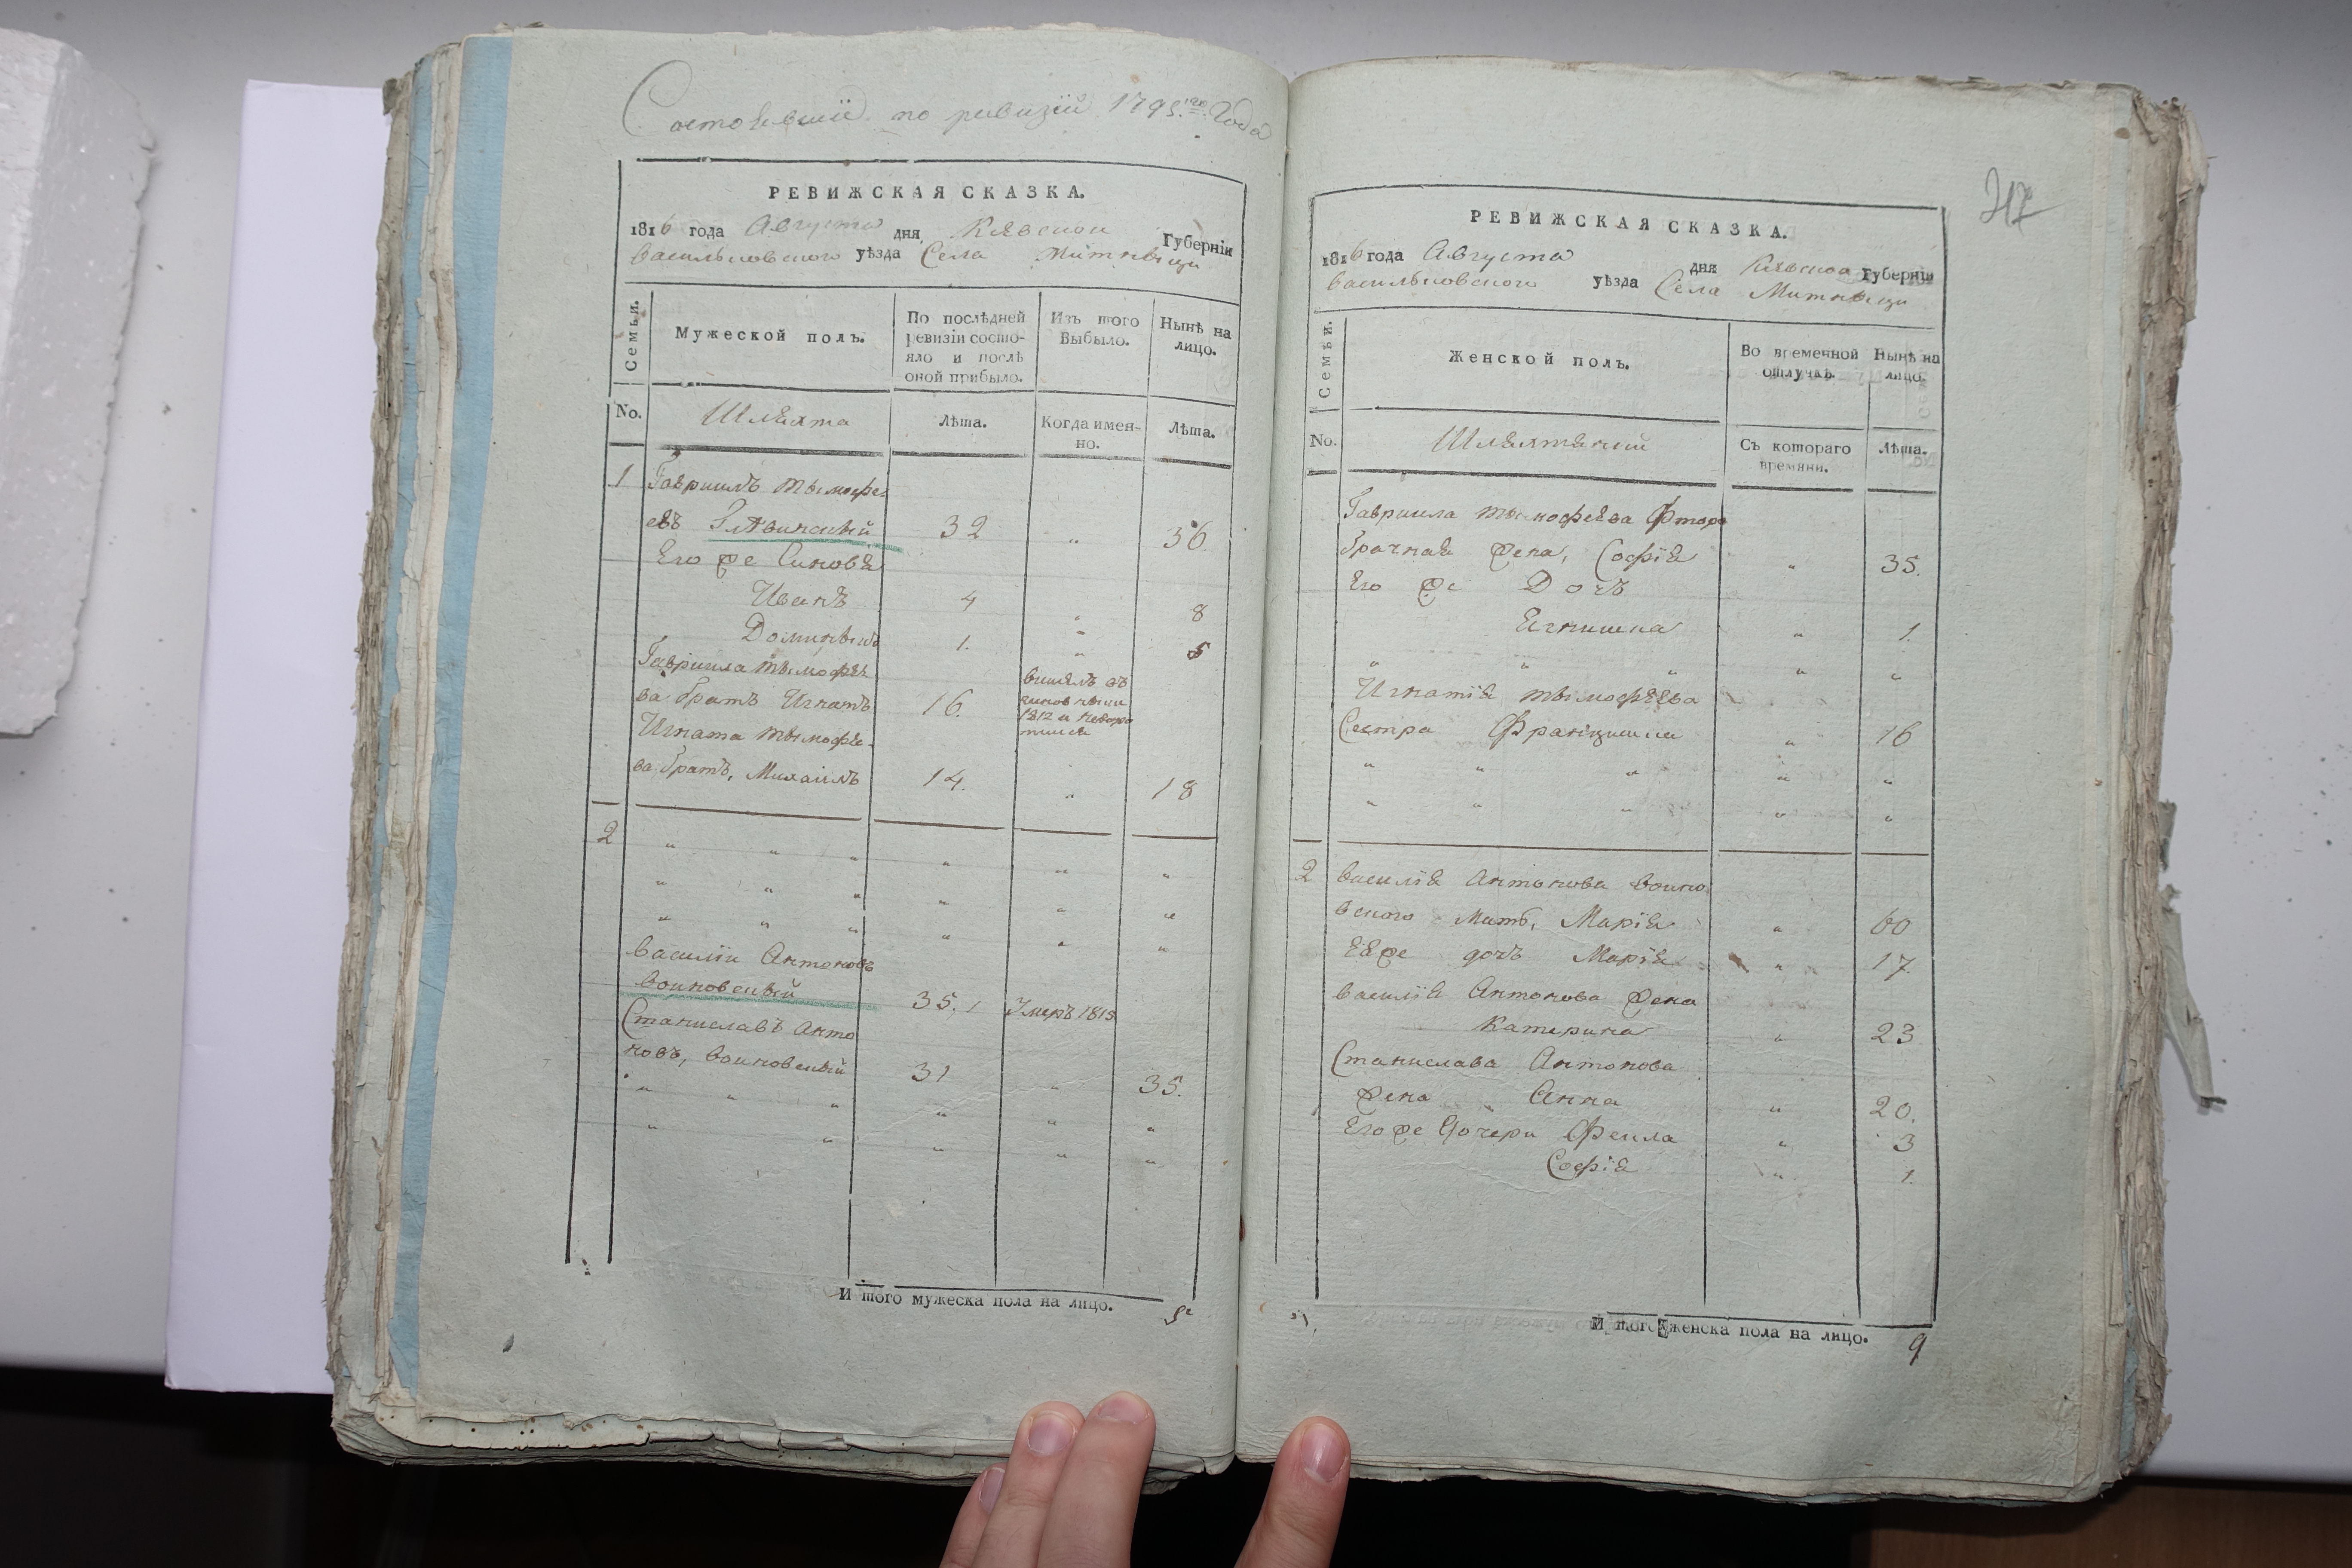 Состоявшіе по ревизіи 1795го Года
РЕВИЖСКАЯ СКАЗКА.
1816 года Августа дня Кіевской Губерніи
васильковского уѣзда Села Митницы
Семьи.
Мужеской полъ.
По послѣдней ревизіи состояло и послѣ оной прибыло.
Изъ того Выбыло.
Нынѣ на лицо.
No. Шляхта Лѣта. Когда именно. Лѣта.
1 Гавриилъ тымофе
евъ 32 „ 36.
Его же Синовя
Иванъ 4 „ 8
Доминыкъ 1. „ 5
Гавриила тымофѣе
ва братъ Игнатъ 16.
1812 и
Игната тымофѣе-
ва братъ, Михаилъ 14. „ 18
2 „ „ „ „ „ „
„ „ „ „ „ „
„ „ „ „ „ „
василій Антоновъ
воиновскый 35, Умеръ 1813
Станиславъ Анто
новъ, воиновскый 31 „ 35.
„ „ „ „ „ „
„ „ „ „ „
И того мужеска пола на лицо. 5
317
РЕВИЖСКАЯ СКАЗКА.
1816 года Августа дня Кіевской Губерніи
васильковского уѣзда Села Митницы
Семьи.
Женской полъ.
Во временной отлучкѣ.
Нынѣ на лицо.
No. Съ котораго времяни. Лѣта.
Гавриила тымофѣева фторо
брачная жена, Софія „ 35.
Его же Дочъ
Ягнишка „ 1.
„ „ „ „ „
Игнатія тымофѣева
Сестра Францишка „ 16
„ „ „ „ „
„ „ „ „ „
2 василія Антонова воино
вского Мать, Марія „ 60
Ея же дочъ Марія „ 17.
василія Антонова жена
Катерина „ 23
Станислава Антонова
жена Анна „ 20.
Его же Дочери Фекла „ 3
Софія „ 1.
И того женска пола на лицо. 9